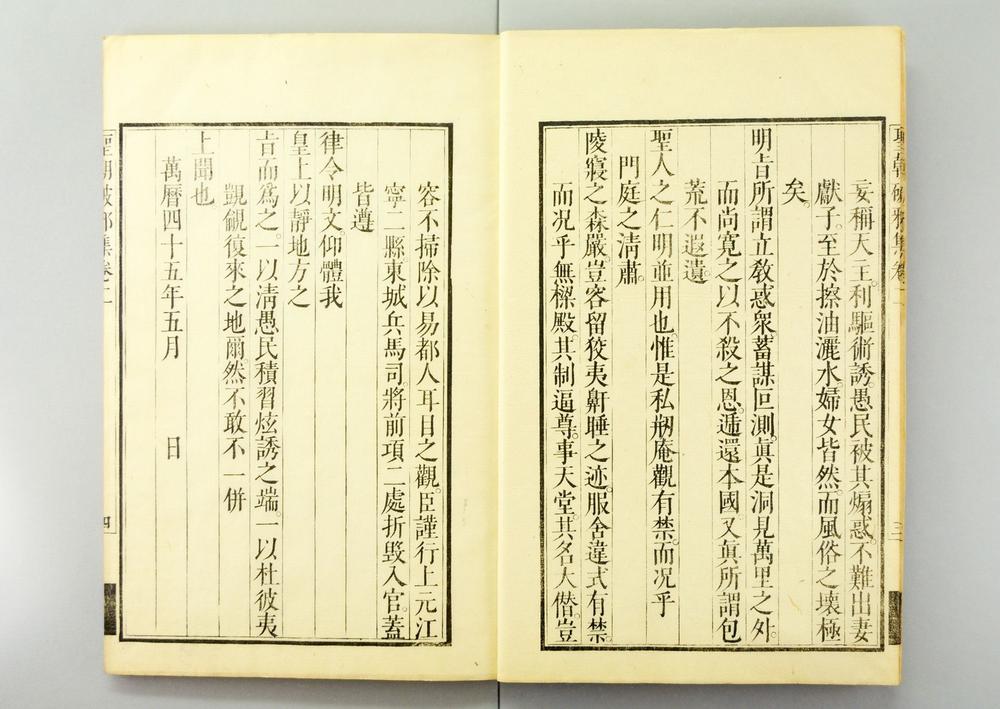 聖朝破邪集卷二 三
妄稱天主。利驅術誘。愚民被其煽惑不難出妻
獻子。至於擦油灑水。婦女皆然。而風俗之壞極
矣。
明旨所謂立敎惑衆。蓄謀叵測。眞是洞見萬里之外。
而尚寛之以不殺之恩。遞還本國又眞所謂包
荒不遐遺。
聖人之仁明並用也惟是私剏庵觀有禁。而况乎
門庭之淸肅。
陵寢之森嚴。豈容留狡夷鼾睡之迹。服舍違式有禁
而况乎無樑殿。其制逼尊。事天堂。其名大僭。豈
容不掃除以易都人耳目之觀。臣謹行上元江
寧二縣東城兵馬司將前項二處折毀入官。蓋
皆遵
律令明文仰體我
皇上以靜地方之
旨而爲之一以淸愚民積習炫誘之端。一以杜彼夷
覬覦復來之地爾然不敢不一併
上聞也
萬曆四十五年五月 日
聖朝破邪集卷二 四